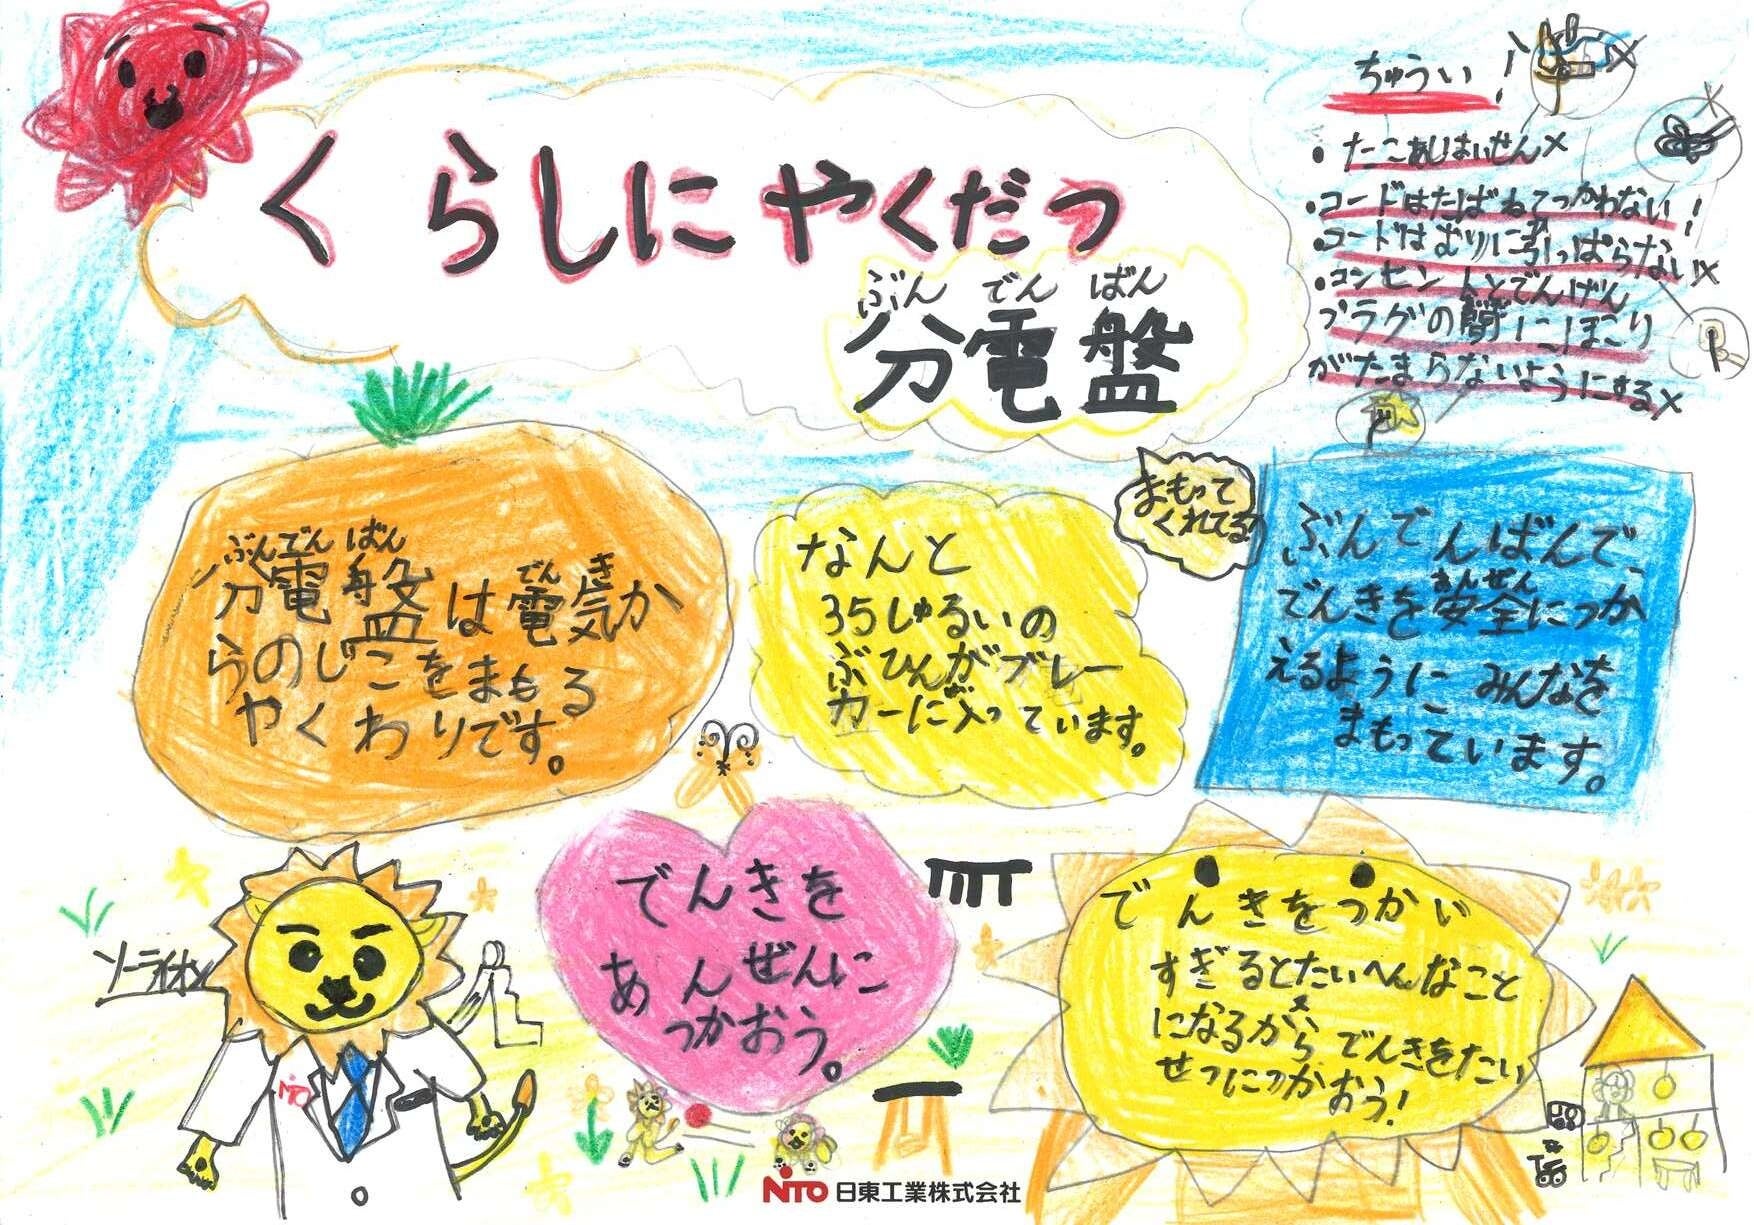 くらしにやくだつ
ぶんでんばん
分電盤
ちゅうい!
・たこあしはいせん×
・コードはたばねてつかわない!
・コードはむりに引っぱらない×
・コンセントとでんげん
プラグの間にほこり
がたまらないようにする×
ぶんでんばん でんき
分電盤は電気か
らのじこをまもる
やくわりです。
なんと
35しゅるいの
ぶひんがブレー
カーに入っています。
まもって
くれてる!
ぶんでんばんで、
あんぜん
でんきを安全につか
えるように みんなを
まもっています。
ソーライオン
NITO
でんきを
あんぜんに
つかおう。
でんきをつかい
すぎるとたいへんなこと
になるから でんきをたい
せつにつかおう!
NITO 日東工業株式会社